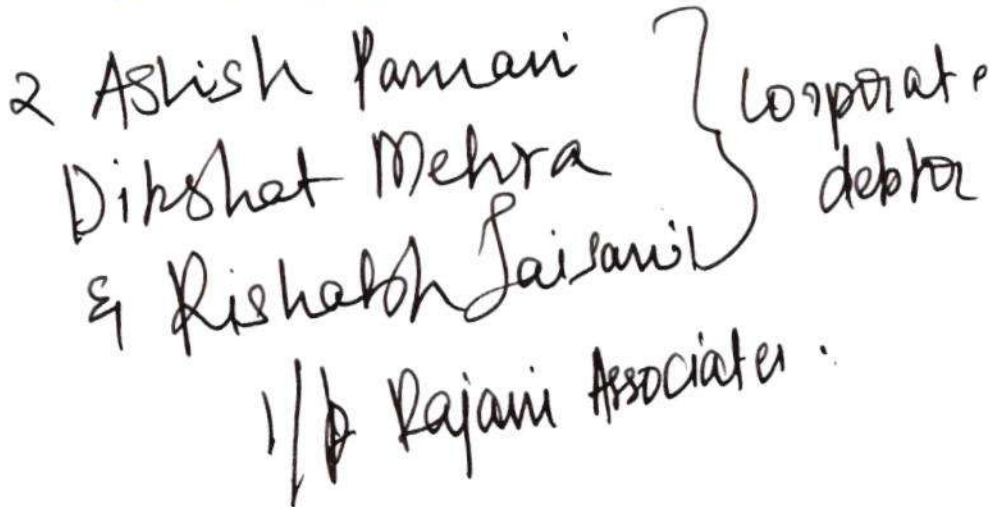 2 Ashish Parwani
Dikshat Mehra
& Rishabh Jaisani
Corporate
debtor
i/b Rajani Associates.